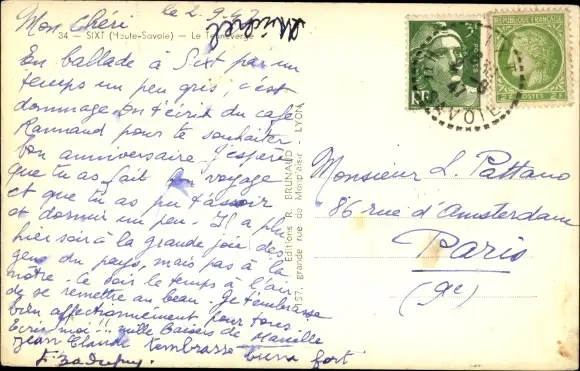 Mon Chéri
le 2.9.47
Michel
34 — SIXT (Haute-Savoie) — Le Tenneverge
En ballade à Sixt par un
temps un peu gris, c'est
dommage. On t'écrit du café
Rannaud pour te souhaiter
bon anniversaire. J'espère
que tu as fait bon voyage
et que tu as pu t'asseoir
et dormir un peu. Il a plu
hier soir à la grande joie des
gens du pays, mais pas à la
nôtre. Ce soir le temps à l'air
de se remettre au beau. Je t'embrasse
bien affectionnement pour tous
Ecris-moi!! mille baisers de Marcelle
Jean Claude t'embrasse bien fort
Editions R. BRUNAUD - LYON
157, grande rue de Monplaisir
RF
3F
REPUBLIQUE FRANÇAISE
POSTES
SAVOIE
Monsieur L. Pattano
86 rue d'Amsterdam
Paris
(9e)